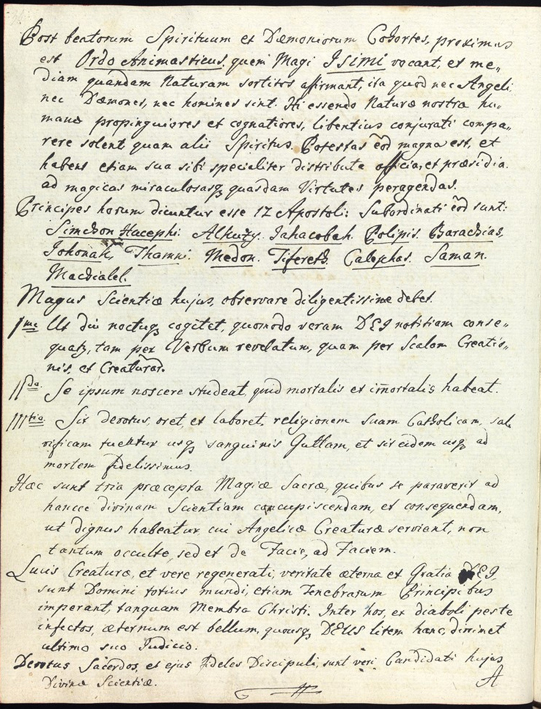 Post beatorum Spirituum et Dæmoniorum Cohortes, proximus
est Ordo Animasticus, quem Magi Isimi vocant, et me„
diam quandam Naturam sortitos affirmant, ita quod nec Angeli
nec Dæmones, nec homines sint. Hi essendo Naturæ nostræ hu„
manæ propinquiores et cognatiores, libentius conjurati compa„
rere solent quam alii Spiritus. Potestas eod magna est, et
habent etiam sua sibi specialiter distributa officia, et præsidia
ad magicas miraculosasq quasdam Virtutes peragendas.
Principes horum dicuntur esse 12 Apostoli: Subordinati eod sunt:
Simehon Hacephi Alhuzy. Jahacobah. Polipis. Barachias.
Johonah Thamni. Medon. Tifereth Calophas. Saman.
Machialel.
Magus Scientiæ hujus, observare diligentissime debet.
I mo Ut diu noctuq cogitet, quomodo veram DEI notitiam conse„
quatz, tam per Verbum revelatum, quam per Scalam Creatio„
nis, et Creaturar.
II do Se ipsum noscere studeat, quid mortalis et im̄ortalis habeat.
III tio Sit devotus, oret, et laboret, religionem suam Catholicam, salu
rificam tueatur usq sanguinis Guttam, et sit eidem usq ad
mortem fidelissimus.
Hæc sunt tria præcepta Magiæ Sacræ, quibus se paraverit ad
hancce divinam Scientiam concupiscendam, et consequendam,
ut dignus habeatur cui Angelicæ Creaturæ serviant, non
tantum occulte, sed et de Facie, ad Faciem.
Lucis Creaturæ, et vere regenerati, veritate æterna et Gratia DEI,
sunt Domini totius mundi, etiam Tenebrarum Principibus
imperant, tanquam Membra Christi. Inter hos, et diaboli peste
infectos, æternum est bellum, quousq DEUS litem hanc, dirimet
ultimo suo Judicio.
Devotus Sacerdos, et ejus fideles Discipuli, sunt veri Candidati hujus
Divinæ Scientiæ.
A